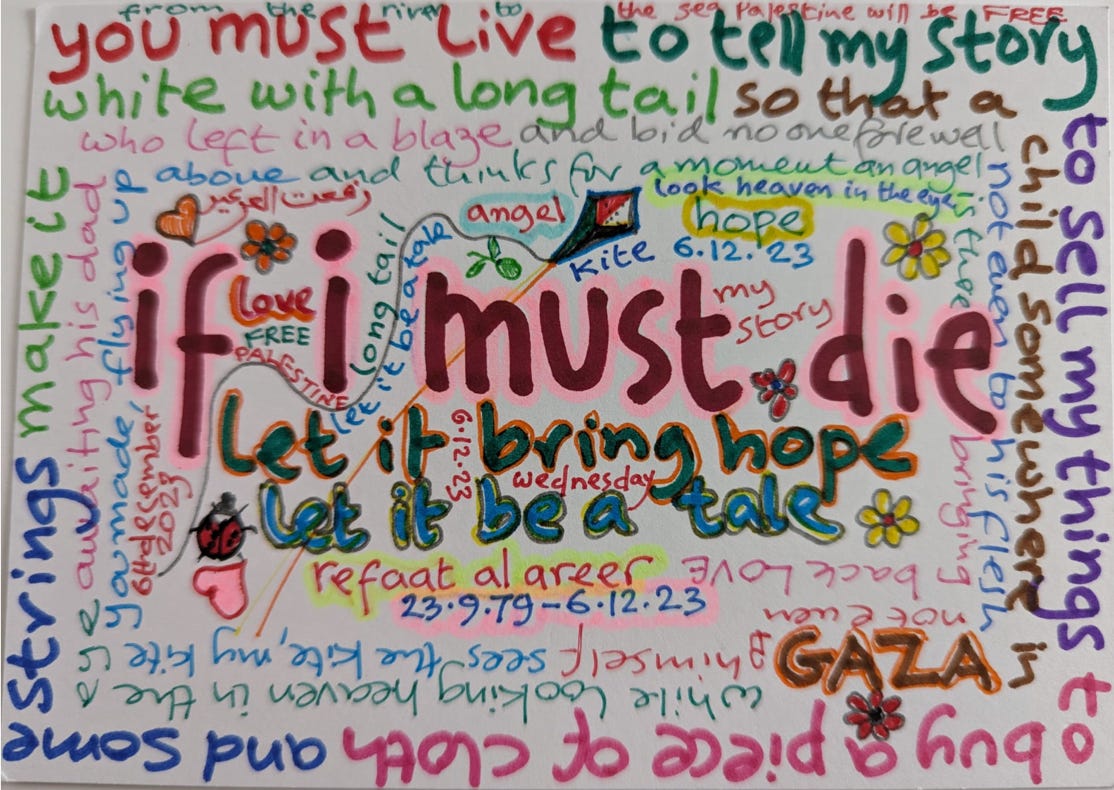 from the river to the sea Palestine will be FREE
you must live to tell my story
to sell my things to
buy a piece of cloth
and some
strings
make it
white with a long tail so that a
child somewhere in
GAZA
while looking heaven in the
awaiting his dad
who left in a blaze and bid no one farewell
not even to his flesh
not even
himself
sees the kite, my kite
you made, flying up
above and thinks for a moment an angel
is there
bringing
back LOVE
look heaven in the eye
رفعت العرعير
angel
hope
kite 6.12.23
long tail
let it be a tale
if i must die
love
FREE
PALESTINE
my
story
let it bring hope
6.12.23
wednesday
let it be a tale
6th december
2023
refaat al areer
23.9.79-6.12.23